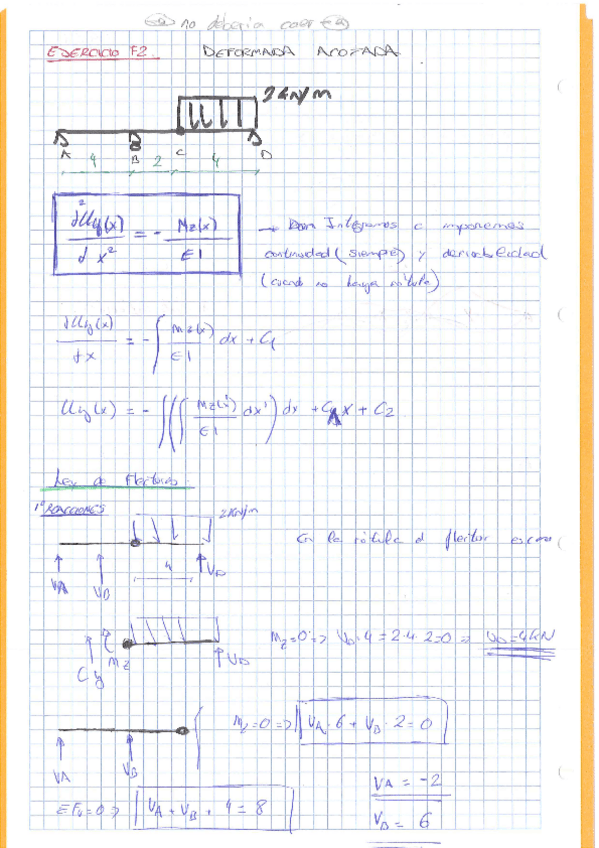 no debería caer
EJERCICIO F2. DEFORMADA ACOTADA
2 kN/m
A B C D
4 2 4
d²Uy(x) / dx² = - Mz(x) / EI
→ Integramos e imponemos
continuidad (siempre) y derivabilidad
(cuando no haya rótula)
dUy(x) / dx = - ∫ Mz(x) / EI dx + C1
Uy(x) = - ∫(∫ Mz(x') / EI dx') dx + C1 x + C2
Ley de Flectores
1º REACCIONES
2 kN/m
En la rótula el flector es cero
4
VA VB VD
Mz=0 => VD·4 = 2·4·2=0 => VD=4kN
Mz VD
Cy
Mz=0 => VA·6 + VB·2 = 0
VA VB
VA = -2
ΣFy=0 => VA + VB + 4 = 8
VB = 6